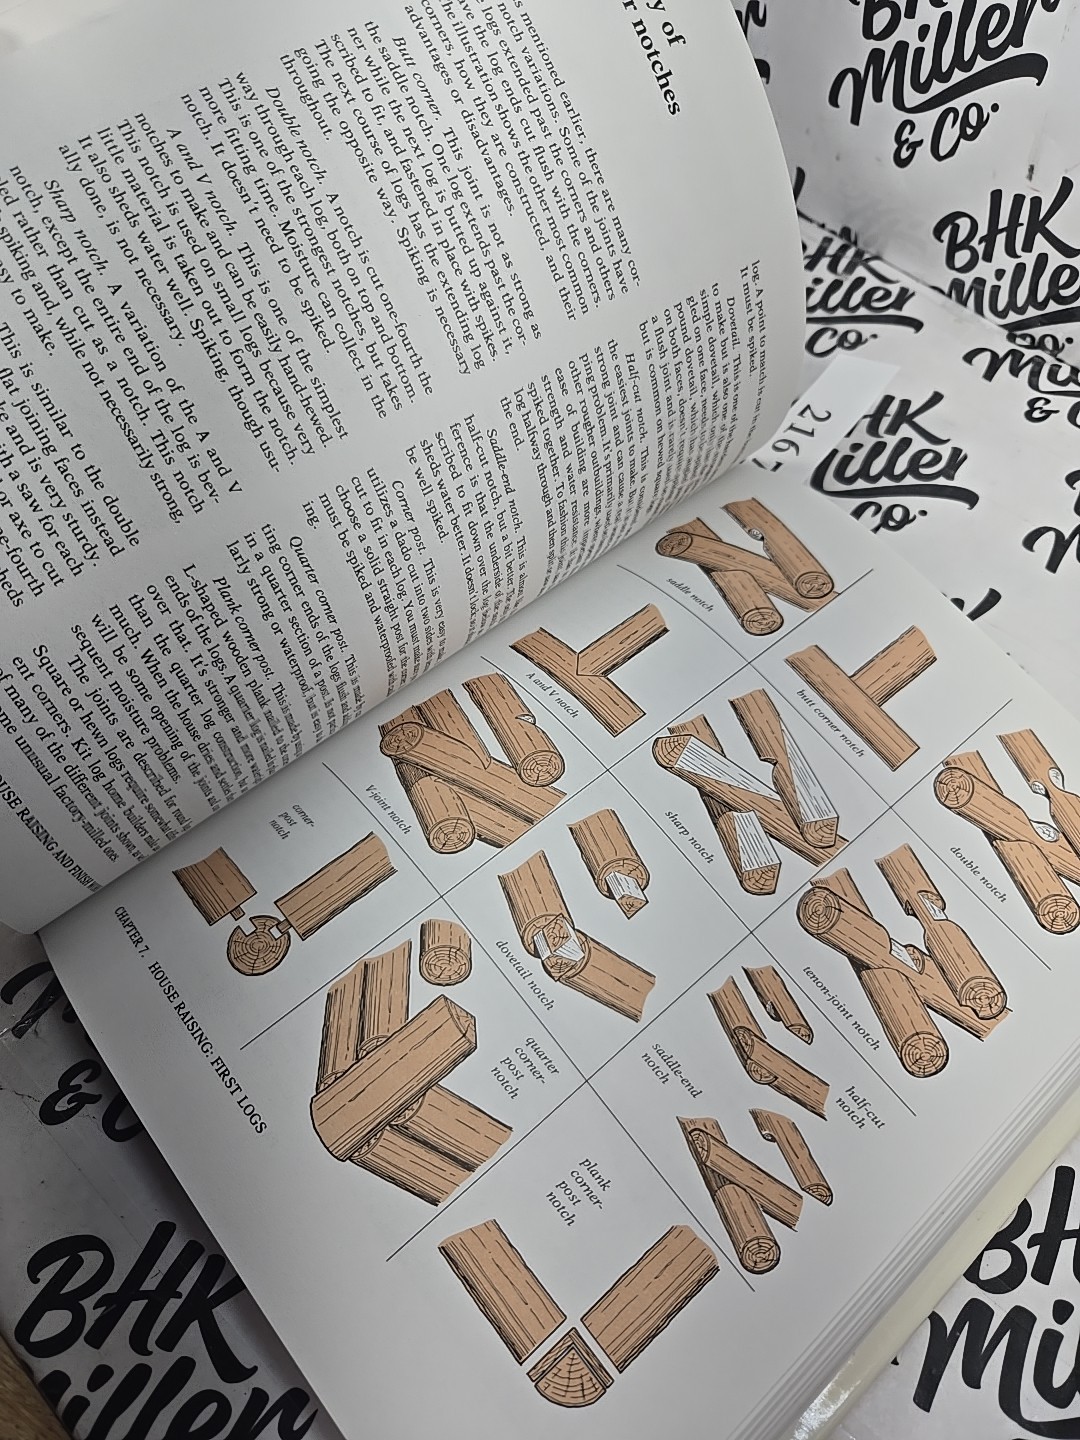 y of
r notches
s mentioned earlier, there are many cor-
notch variations. Some of the joints have
logs extended past the corners and others
ve the log ends cut flush with the corners.
he illustration shows the other most common
corners, how they are constructed, and their
advantages or disadvantages.
Butt corner. This joint is not as strong as
the saddle notch. One log extends past the cor-
ner while the next log is butted up against it,
scribed to fit, and fastened in place with spikes.
The next course of logs has the extending log
going the opposite way. Spiking is necessary
throughout.
Double notch. A notch is cut one-fourth the
way through each log, both on top and bottom.
This is one of the strongest notches, but takes
more fitting time. Moisture can collect in the
notch. It doesn't need to be spiked.
A and V notch. This is one of the simplest
notches to make and can be easily hand-hewed.
This notch is used on small logs because very
little material is taken out to form the notch.
It also sheds water well. Spiking, though usu-
ally done, is not necessary.
Sharp notch. A variation of the A and V
notch, except the entire end of the log is bev-
led rather than cut as a notch. This notch
spiking and, while not necessarily strong,
sy to make.
This is similar to the double
flat, joining faces instead
ve and is very sturdy.
with a saw for each
or axe to cut
e-fourth
heds
log. A point to match is
It must be spiked.
Dovetail. This is one of the
to make but is also one of the
simple dovetail, which
gled on one face, needs
pound dovetail, which
on both faces, doesn't
a flush joint and is rarely used
but is common on hewed
Half-cut notch. This is one
the easiest joints to make, but
strong joint and can cause a
ping problem. It's primarily used
other rougher outbuildings, where
ease of building are more
strength and water resistance.
spiked together. To fashion this
log halfway through and then split
the end.
Saddle-end notch. This is almost
half-cut notch, but a bit better. The
ference is that the underside of the
scribed to fit down over the log
sheds water better. It doesn't lock
be well spiked.
Corner post. This is very easy to
utilizes a dado cut into two sides
cut to fit in each log. You must make
choose a solid straight post for the
must be spiked and waterproofed with
ing.
Quarter corner post. This is made by
ting corner ends of the logs flush and
in a quarter section of a post. It's not
larly strong or waterproof, but is easy
Plank corner post. This is made
L-shaped wooden plank nailed to the
ends of the logs. A quarter log is nailed
over that. It's stronger and more
than the quarter log construction, but
much. When the house dries and settles
will be some opening of the joints and
sequent moisture problems.
The joints are described for round
Square or hewn logs require somewhat
ent corners. Kit log home builders make
of many of the different joints shown,
ome unusual factory-milled ones
OUSE RAISING AND FINISH
2167
saddle notch
A and V notch
butt corner notch
V-joint notch
sharp notch
double notch
corner-
post
notch
dovetail notch
tenon-joint notch
quarter
corner-
post
notch
saddle-end
notch
half-cut
notch
plank
corner-
post
notch
CHAPTER 7. HOUSE RAISING: FIRST LOGS
BHK
Miller
& Co.
BHK
Miller
HK
iller
Co.
HK
iller
co.
BHK
Miller